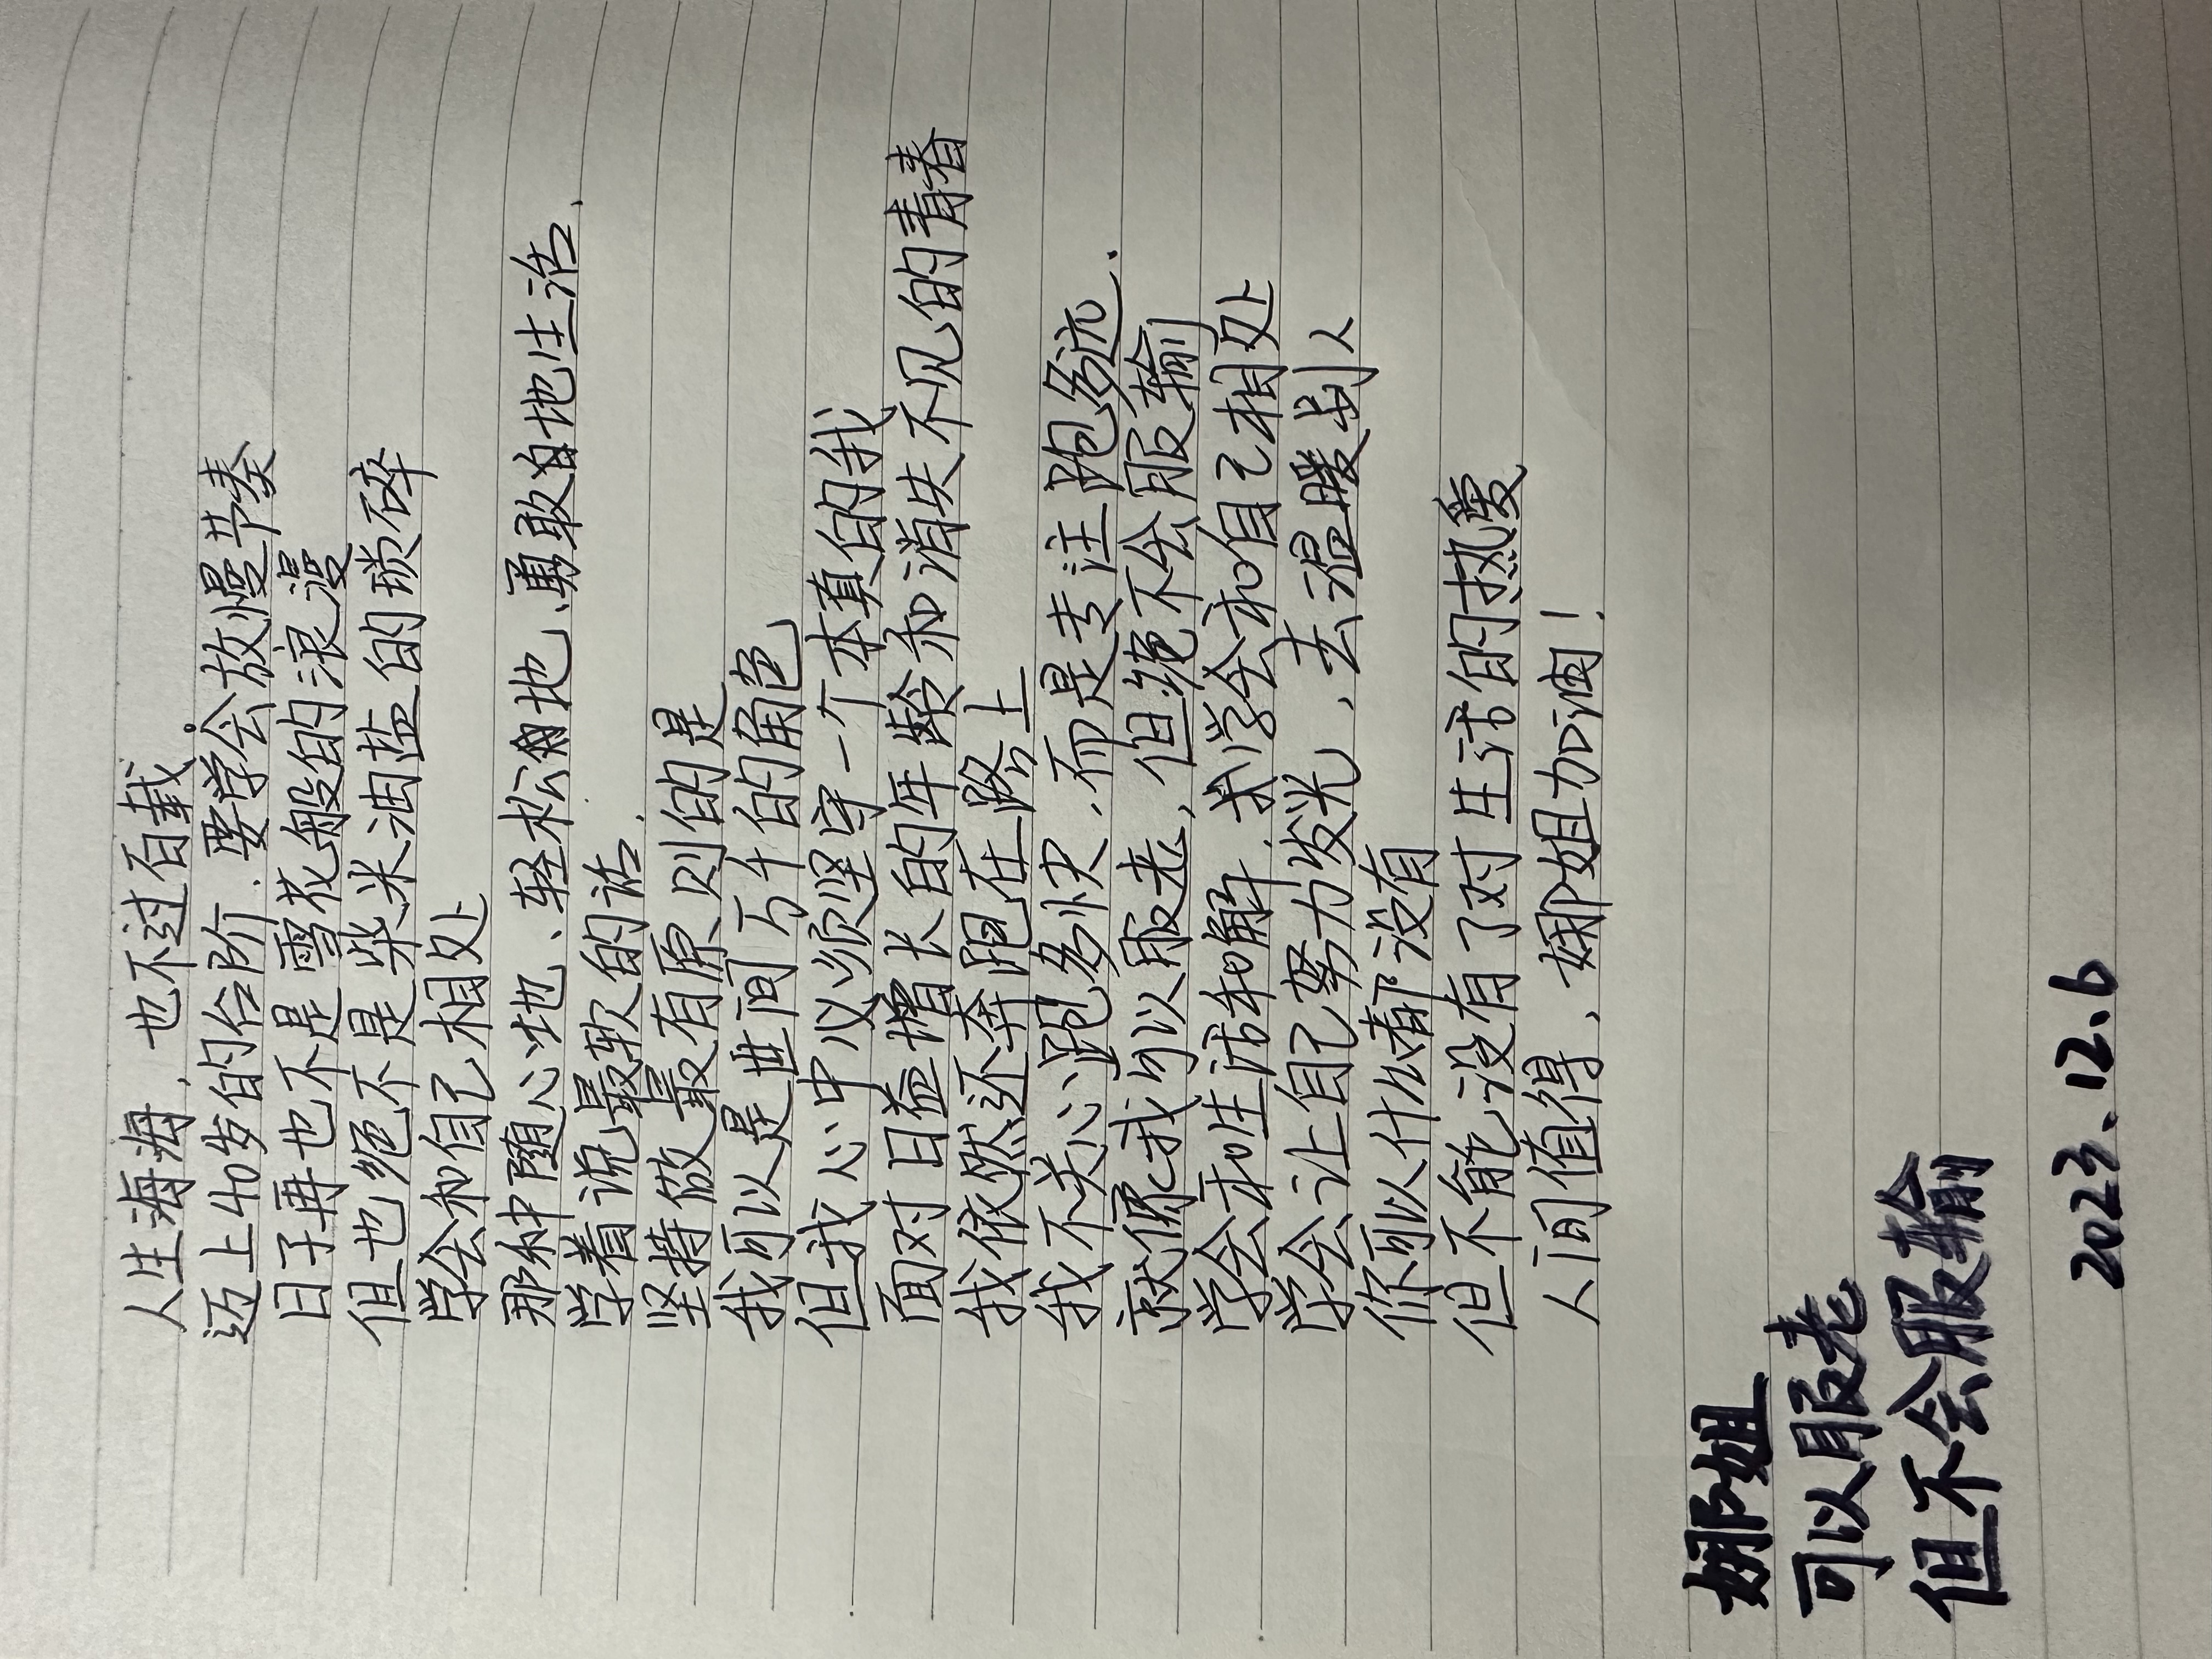 人生海海，也不过百载．
迈上40岁的台阶．要学会放慢节奏
日子再也不是雪花般的浪漫
但也绝不是柴米油盐的琐碎
学会和自己相处
那种随心地、轻松地、勇敢地生活、
学着说最软的话．
坚持做最有原则的是
我可以是世间万千的角色
但我心中必须坚守一个本真的我
面对日益增长的年龄和消失不见的青春
我依然还奔跑在路上
我不关心跑多快．而是专注跑多远．
就像我可以服老，但绝不会服输
学会和生活和解．我学会和自己相处
学会让自己努力发光、去温暖别人
你可以什么都没有
但不能没有了对生活的热爱
人间值得、娜姐加油！
娜姐
可以服老
但不会服输
2023.12.6